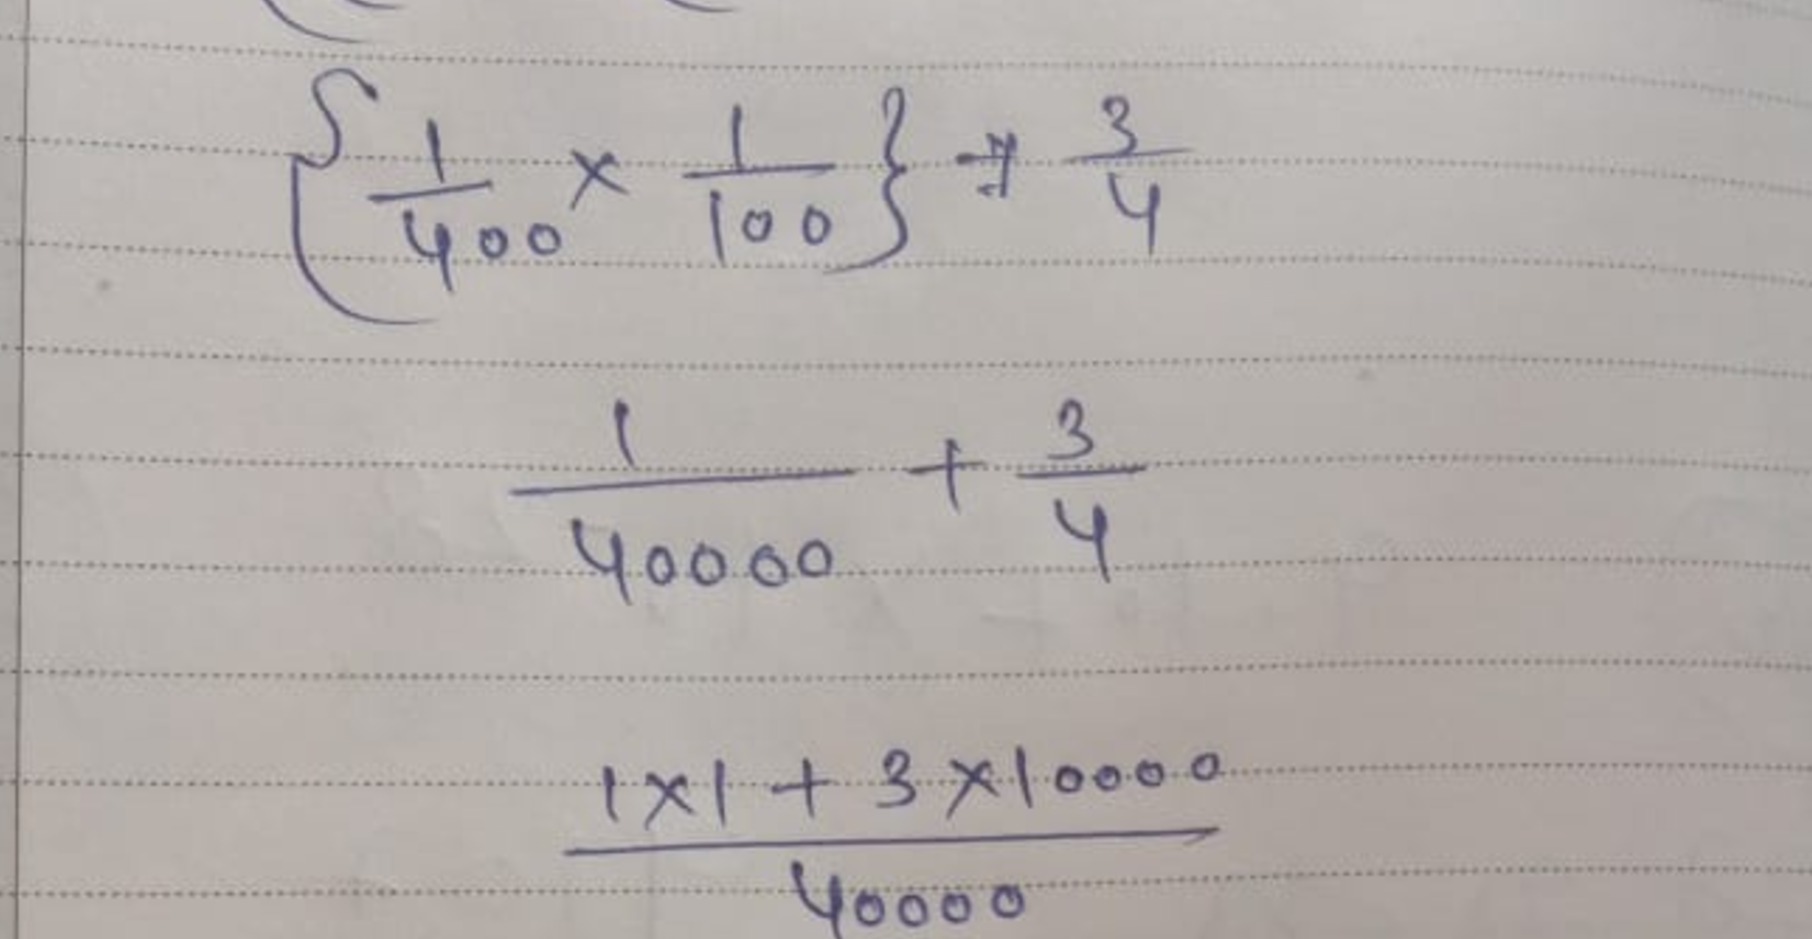 {1/400 × 1/100} + 3/4
1/40000 + 3/4
1×1 + 3×10000 / 40000